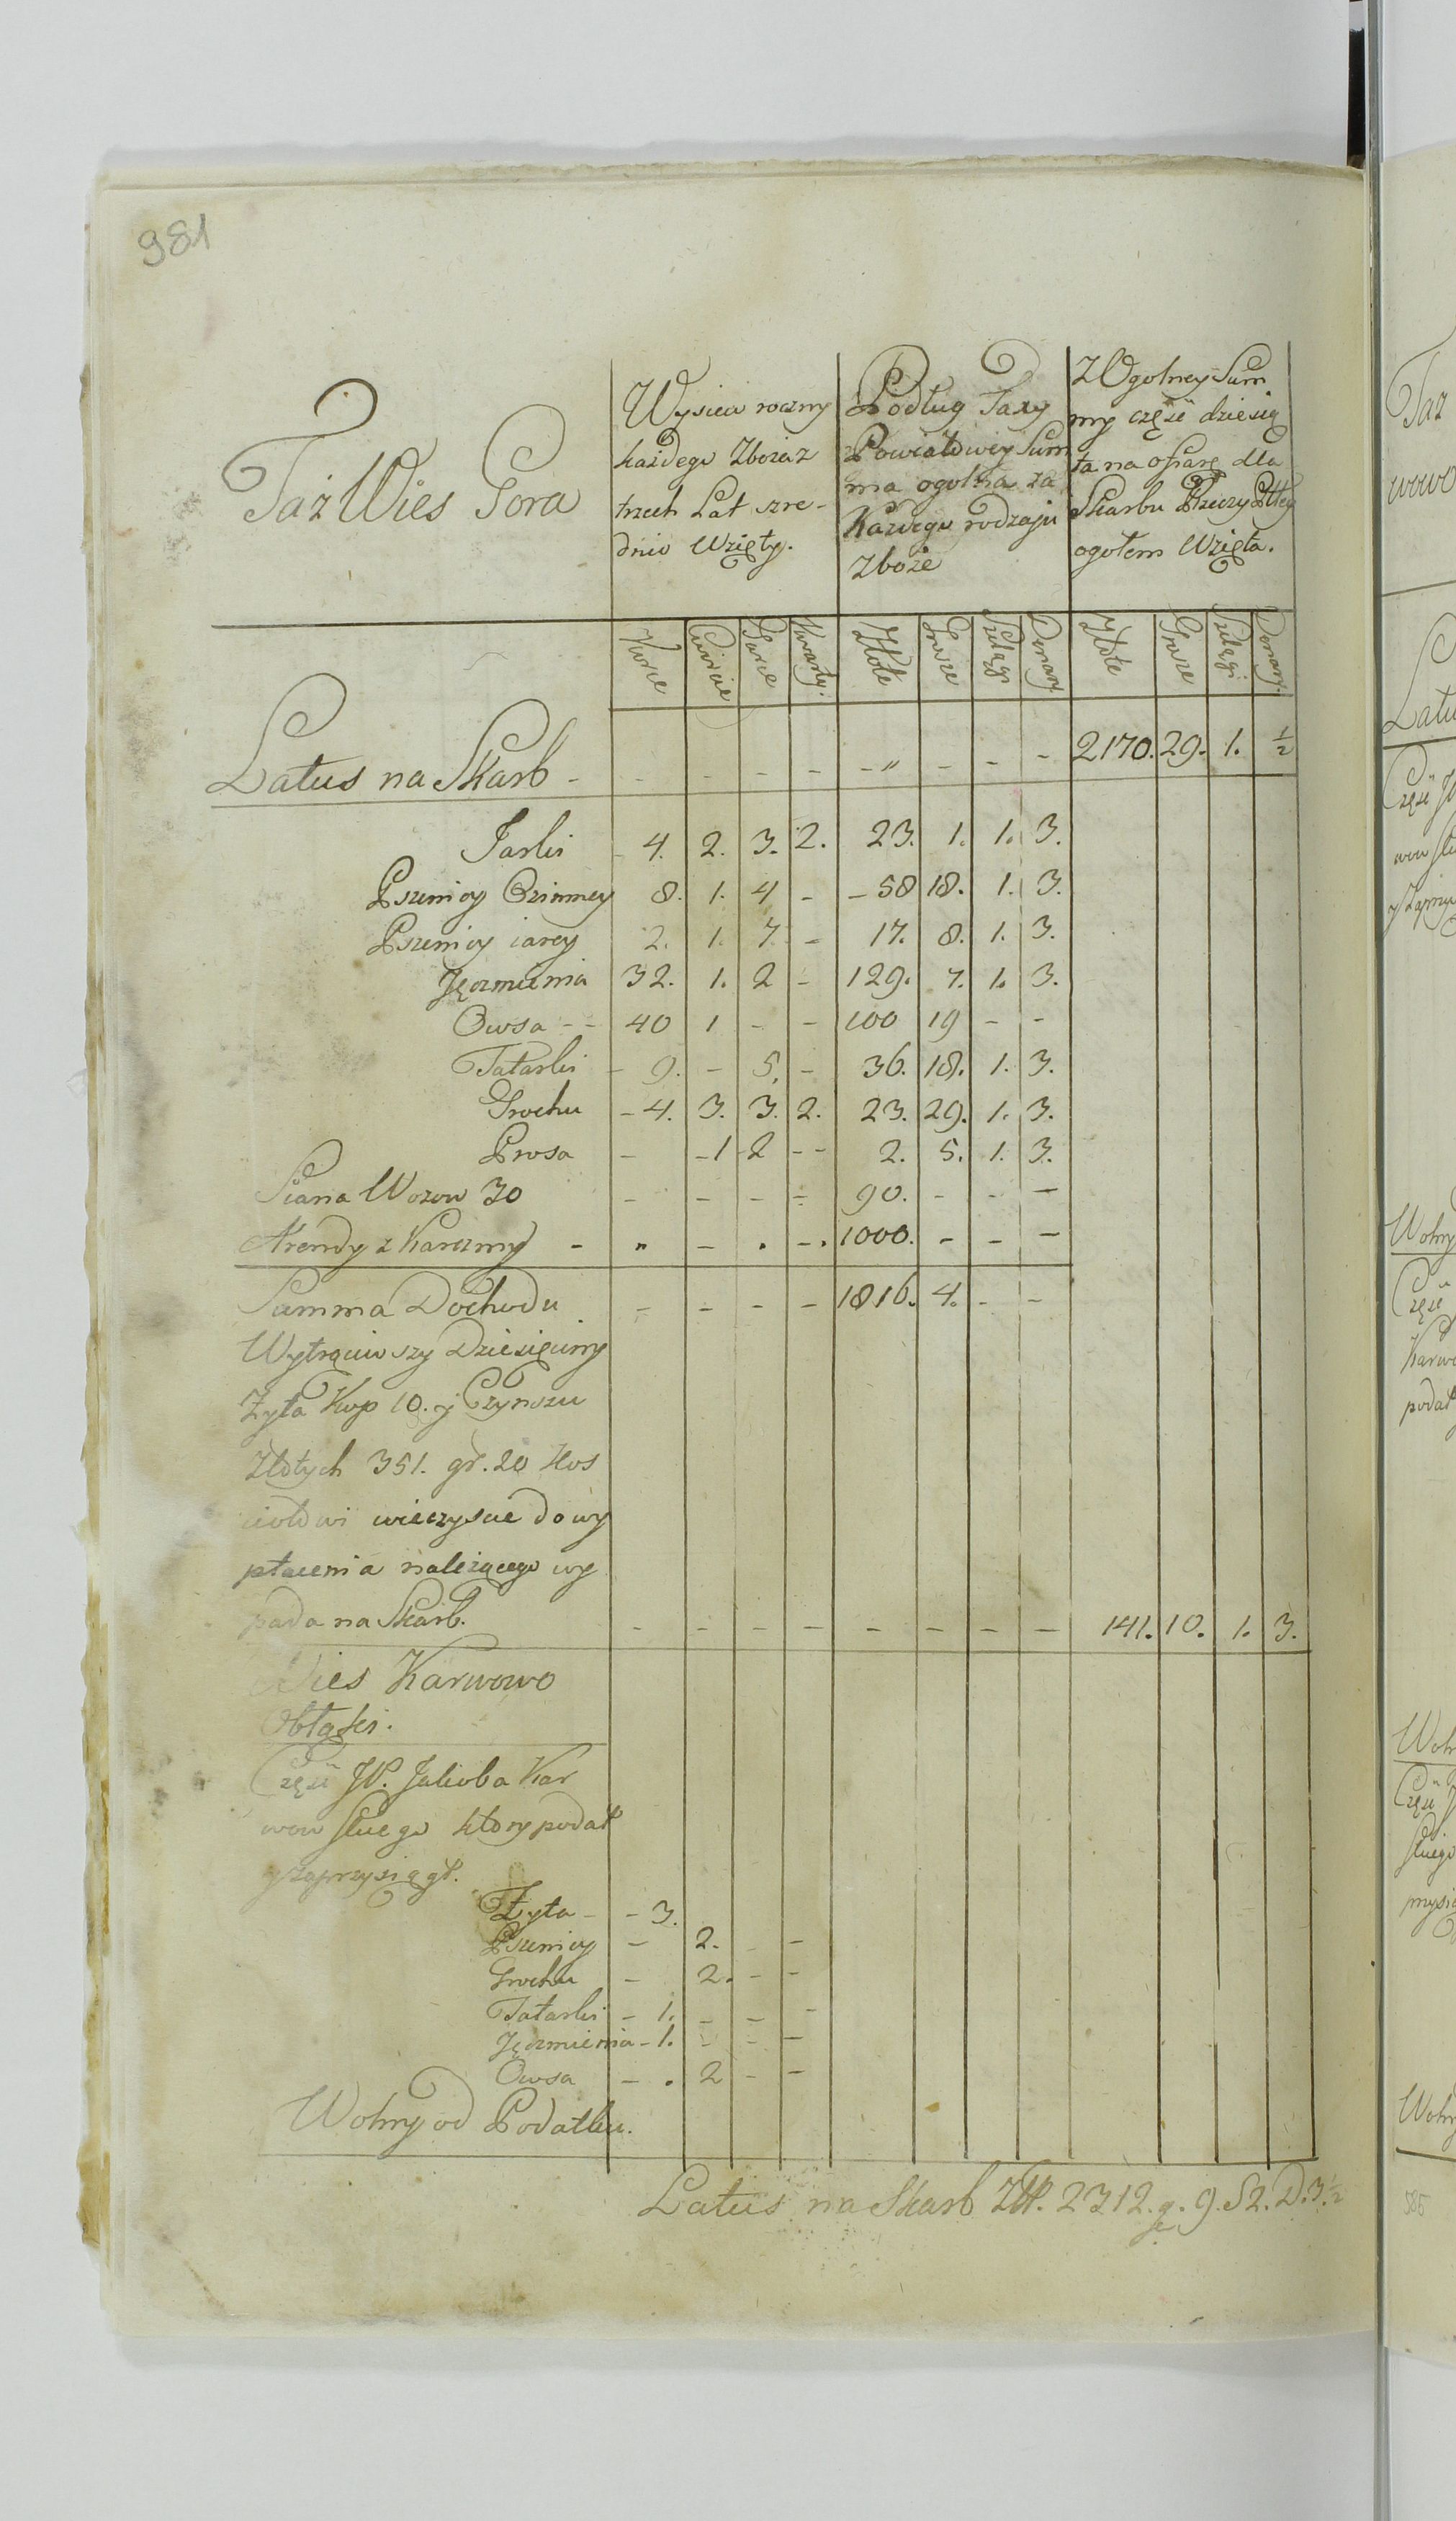 981
Taż Wies Gora
Wysiew roczny
każdego Zboża z
trzech Lat szre-
dnio Wzięty.
Podług Taxy
Powiatowey Sum
ma ogolna za
Każdego rodzaju
zboże
Z Ogolney Sum
my część dziesią
ta na ofiarę dla
Skarbu Rzeczy Pltey
ogołem Wzięta.
Korce Cwircie Garce Kwarty. Złote Grosze Szelągi Denary Złote Grosze Szelągi Denary.
Latus na Skarb - - - - - - " - - - 2170. 29. 1. ½
Jarki - 4. 2. 3. 2. 23. 1. 1. 3.
Pszenicy Ozimney 8. 1. 4 - - 58 18. 1. 3.
Pszenicy iarey 2. 1. 7. - 17. 8. 1. 3.
Jęczmienia 32. 1. 2 - 129. 7. 1. 3.
Owsa - - 40 1 - - 100 19 - -
Tatarki - 9. - 5. - 36. 18. 1. 3.
Grochu - 4. 3. 3. 2. 23. 29. 1. 3.
Prosa - - 1 2 - - 2. 5. 1. 3.
Siana Wozow 30 - - - - 90. - - -
Arendy z Karczmy - " - . - . 1000. - - -
Summa Dochodu - - - - 1816. 4. - -
Wytrąciwszy Dziesięciny
Żyta Kop 10. y Czynszu
Złotych 351. gr. 20 Kos
ciołowi wieczyscie do wy
płacenia należącego wy
pada na Skarb. - - - - - - - - 141. 10. 1. 3.
Wies Karwowo
Część JP. Jakoba Kar
wowskiego ktory podał
y zaprzysiągł.
Żyta - - 3.
Pszenicy - 2. - -
Grochu - 2. - -
Tatarki - 1. - - -
Jęczmienia - 1. - - -
Owsa - . 2 - -
Wolny od Podatku.
Latus na Skarb Złł. 2312. g. 9. S 2. D. 3. ½
Taż
wowo
Latus
Część
Wolny
Część
Karwo
podał
Wolny
Część
skiego
Wolny
585